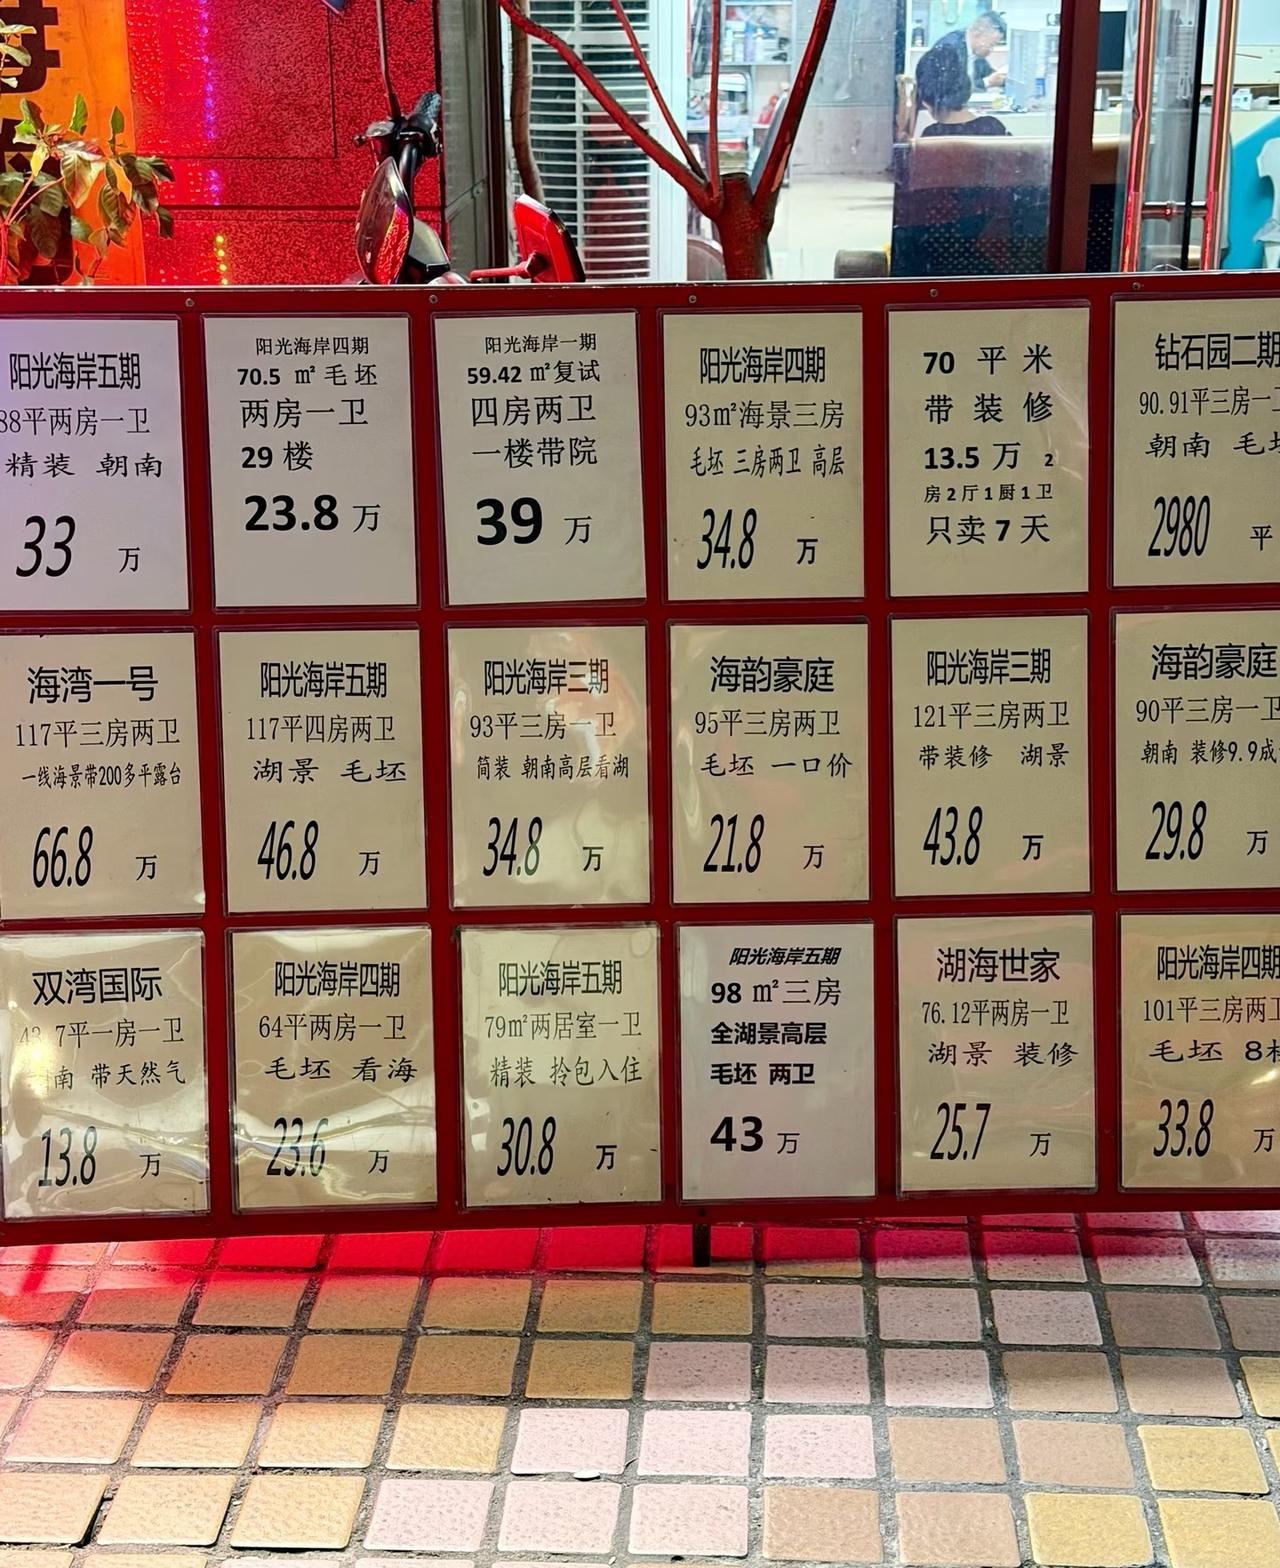 阳光海岸五期
88平两房一卫
精装 朝南
33 万
阳光海岸四期
70.5 ㎡毛坯
两房一卫
29 楼
23.8 万
阳光海岸一期
59.42 ㎡复试
四房两卫
一楼带院
39 万
阳光海岸四期
93㎡海景三房
毛坯 三房两卫 高层
34.8 万
70 平 米
带 装 修
13.5 万 2
房 2 厅 1 厨 1 卫
只卖 7 天
钻石园二期
90.91平三房一
朝南 毛坯
2980 平
海湾一号
117平三房两卫
一线海景带200多平露台
66.8 万
阳光海岸五期
117平四房两卫
湖景 毛坯
46.8 万
阳光海岸三期
93平三房一卫
简装 朝南高层看湖
34.8 万
海韵豪庭
95平三房两卫
毛坯 一口价
21.8 万
阳光海岸三期
121平三房两卫
带装修 湖景
43.8 万
海韵豪庭
90平三房一卫
朝南 装修9.9成
29.8 万
双湾国际
7平一房一卫
南 带天然气
13.8 万
阳光海岸四期
64平两房一卫
毛坯 看海
23.6 万
阳光海岸五期
79㎡两居室一卫
精装 拎包入住
30.8 万
阳光海岸五期
98 ㎡三房
全湖景高层
毛坯 两卫
43 万
湖海世家
76.12平两房一卫
湖景 装修
25.7 万
阳光海岸四期
101平三房两卫
毛坯 8
33.8 万